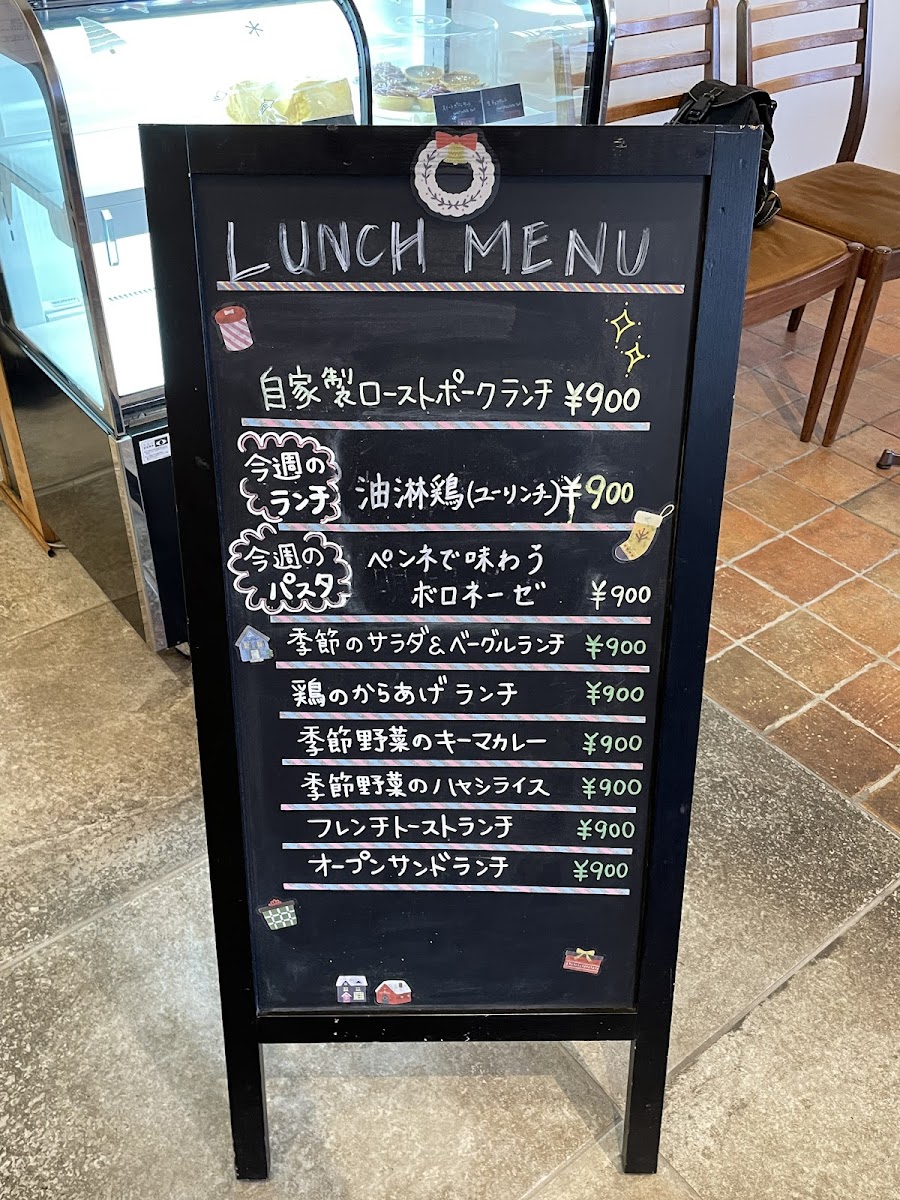 LUNCH MENU
自家製ローストポークランチ ¥900
今週の
ランチ
油淋鶏(ユーリンチー) ¥900
今週の
パスタ
ペンネで味わう
ボロネーゼ ¥900
季節のサラダ&ベーグルランチ ¥900
鶏のからあげランチ ¥900
季節野菜のキーマカレー ¥900
季節野菜のハヤシライス ¥900
フレンチトーストランチ ¥900
オープンサンドランチ ¥900